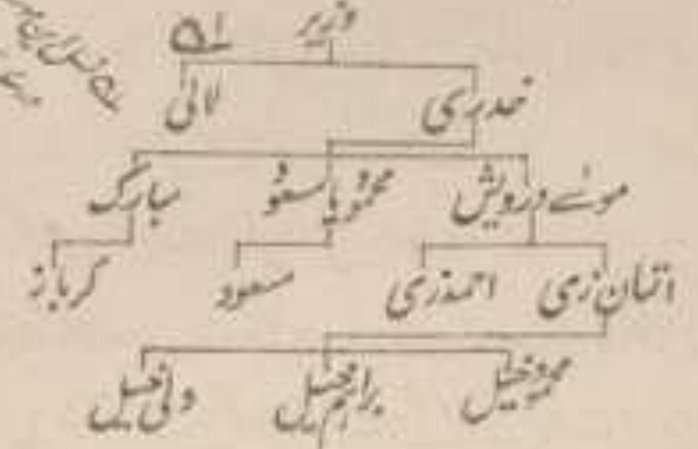 وزیر
لالی
خدری
موسے درویش
محمود یا مسعود
مبارک
اتمان زی
احمدزی
مسعود
گرباز
محمود خیل
براہیم خیل
ولی خیل